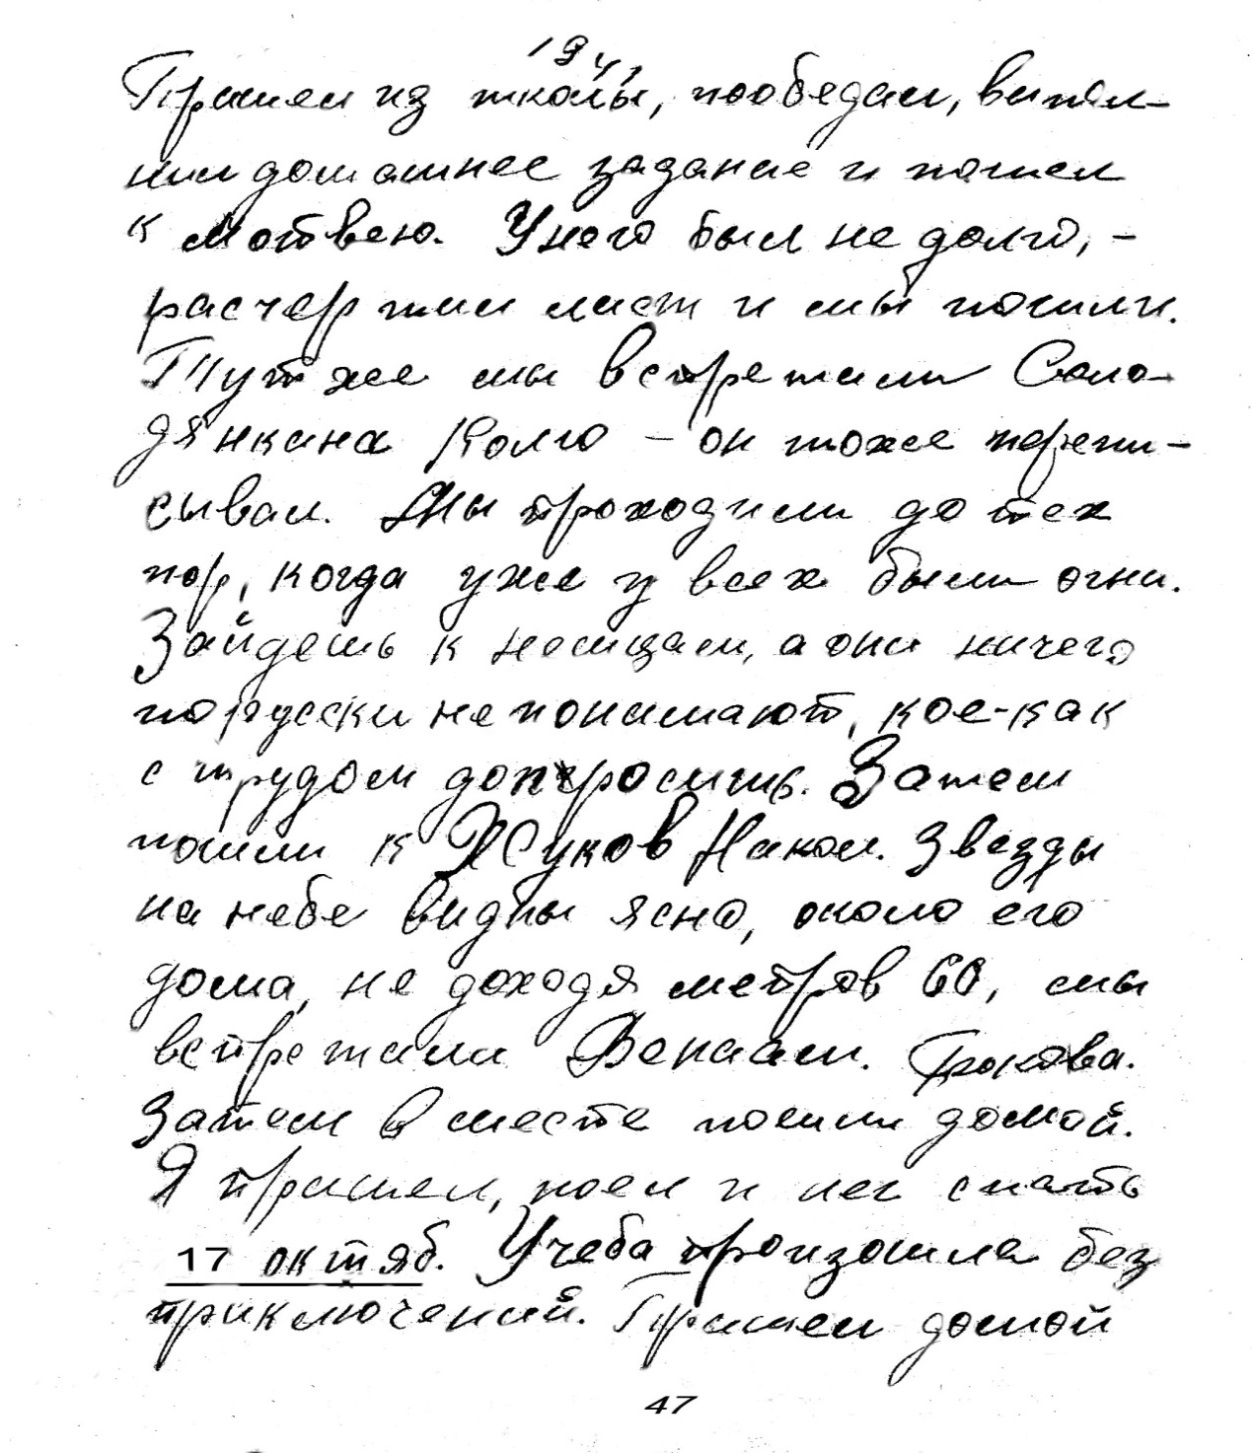 1941
Пришел из школы, пообедал, выпол-
нил домашнее задание и пошел
к Мотвею. У него был не долго, -
расчертил лист и мы пошли.
Тут же мы встретили Соло-
дянкина Колю - он тоже перепи-
сывал. Мы проходили до тех
пор, когда уже у всех были огни.
Зайдешь к немцам, а они ничего
по русски не понимают, кое-как
с трудом допросишь. Затем
пошли к Жуков Никол. Звезды
на небе видны ясно, около его
дома, не доходя метров 60, мы
встретили Вениам.
Затем вместе пошли домой.
Я пришел, поел и лег спать
17 октяб. Учеба произошла без
приключений. Пришел домой
47